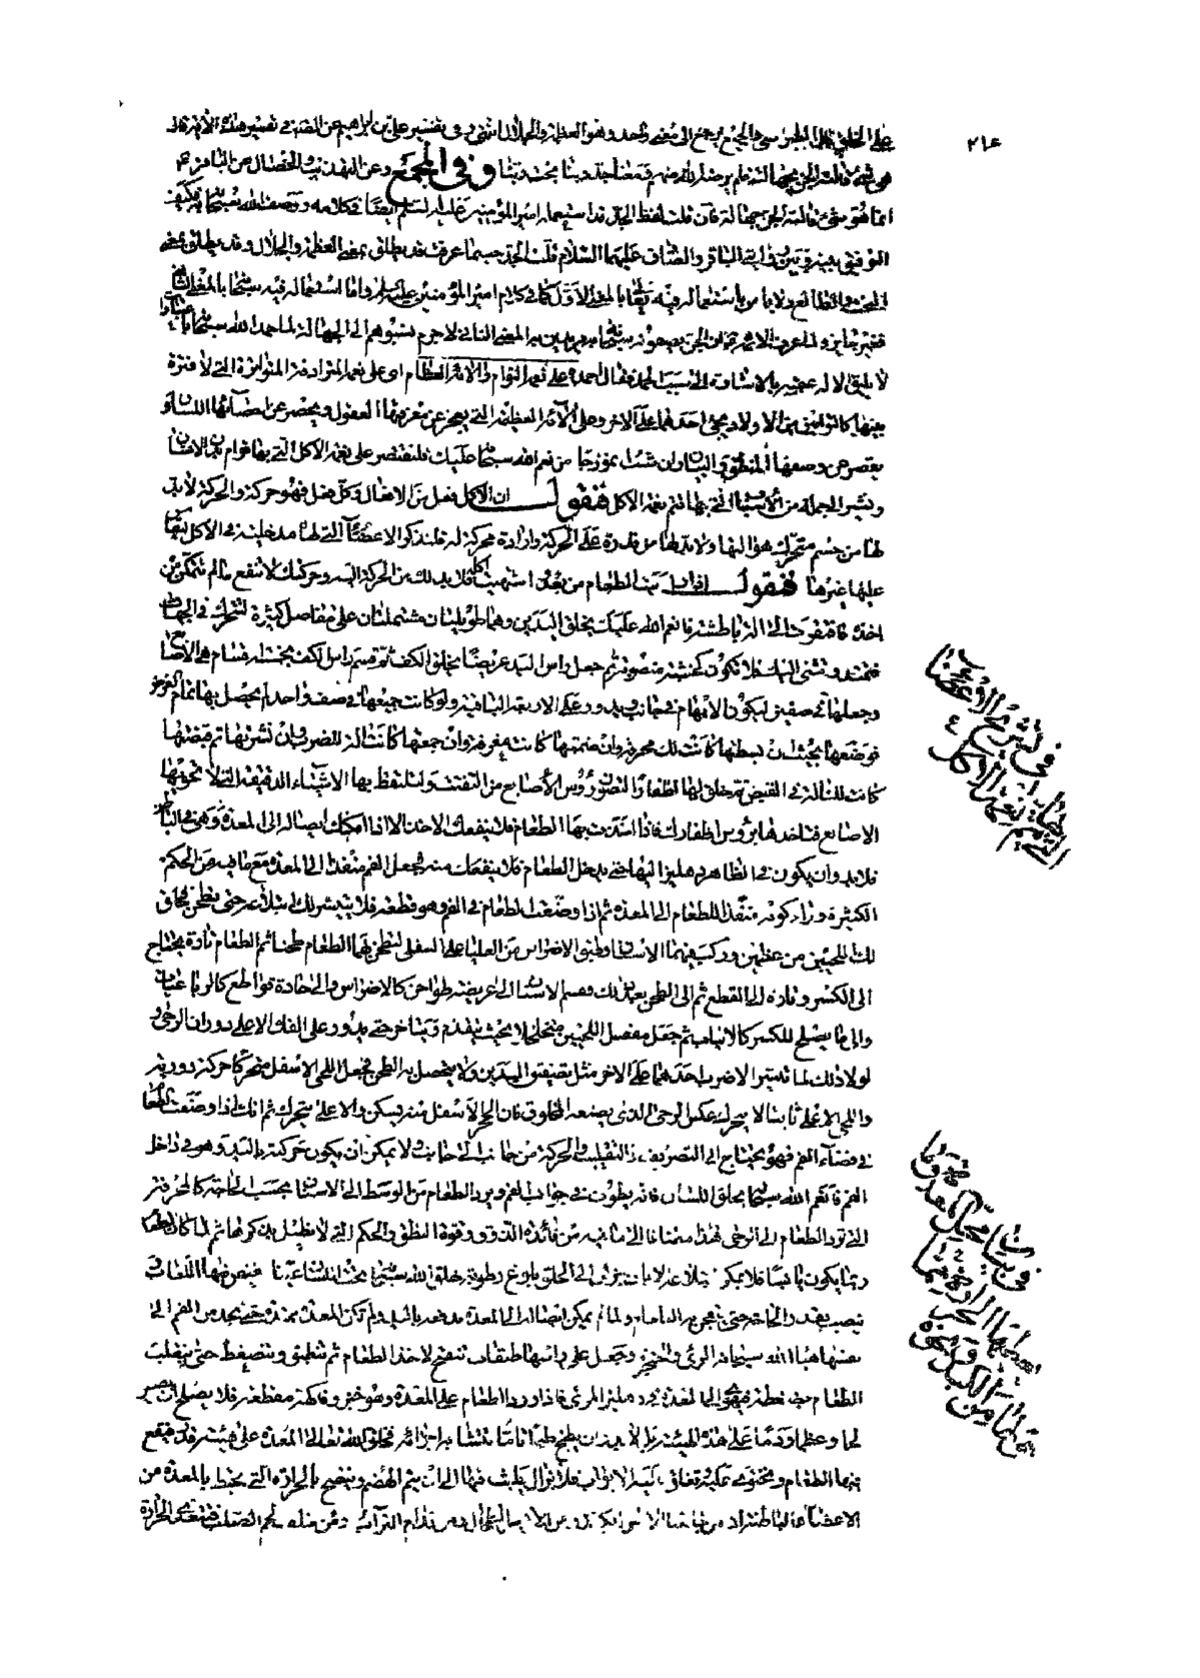 ٢١٤
على الخلق قال الطبرسي والجميع يرجع الى معنى واحد وهو العظمة والجلال انتهى وفى تفسير على بن ابراهيم عن القمى فى تفسير هذه الآية قال
هو شىء قالته الجن بجهالة فلم يرضه الله منهم ومعنى جد ربنا بخت ربنا وفى المجمع وعن التهذيب والخصال عن الباقر ع
انما هو شىء قالته الجن بجهالة فان قلت لفظ الجد قد استعمله امير المؤمنين عليه السلم ايضا فى كلامه ووصف الله سبحانه به فكيف
التوفيق بينه وبين قول الباقر والصادق عليهما السلام قلت الجد حسبما عرفت قد يطلق بمعنى العظمة والجلال وقد يطلق بمعنى
البخت والطالع ولا باس باستعماله فيه تعالى بالمعنى الاول كما فى كلام امير المؤمنين عليه السلم واما استعماله فيه سبحانه بالمعنى الثانى
فغير جايز ولما عرف الائمة ان الجن يصفونه سبحانه مريدين به المعنى الثانى لا جرم نسبوهم الى الجهالة لما حمد الله سبحانه بما
لا يليق الا له عقبه بالاشارة الى سبب الحمد فقال احمده على نعمه التؤام وآلائه العظام اى على نعمه المترادفة المتواترة التى لا فترة
بينها كالتوامين من الاولاد يجىء احدهما على اثر الاخر وعلى الآئه العظيمة التى يعجز عن معرفتها العقول ويحصر عن احصائها اللسان و
يقصر عن وصفها المنطق والبيان وان شئت نموزجا من نعم الله سبحانه عليك فلنقتصر على نعمة الاكل التى بها قوام بدن الانسان
ونشير الى جملة من الاسباب التى بها تتم نعمة الاكل فنقول ان الاكل فعل من الافعال وكل فعل فهو حركة والحركة لا بد
لها من جسم متحرك هو آلتها ولا بد لها من قدرة على الحركة وارادة محركة له فلنذكر الاعضاء التى لها مدخلية فى الاكل ليقاس
عليها غيرها فنقول اذا رايت الطعام من بعد واشتهيت اكله فلا بد لك من الحركة اليه وحركتك لا تنفع ما لم تتمكن من
اخذه فافتقرت الى آلة باطشة فانعم الله عليك بخلق اليدين وهما طويلتان مشتملتان على مفاصل كثيرة لتتحرك فى الجهات
فتمتد وتنثنى اليك فلا تكون كخشبة منصوبة ثم جعل راس اليد عريضا بخلق الكف ثم قسم راس الكف بخمسة اقسام هى الاصابع
وجعلها فى صفين ليكون الابهام فى جانب ويدور على الاربعة الباقية ولو كانت جميعها فى صف واحد لم يحصل بها تمام الغرض
فوضعها بحيث ان بسطتها كانت لك مجرفة وان ضممتها كانت مغرفة وان جمعتها كانت آلة للضرب وان نشرتها ثم قبضتها
كانت لك آلة فى القبض ثم خلق لها اظفارا لتصون رؤس الأصابع من التفتت ولتلتقط بها الاشياء الدقيقة التى لا تحويها
الاصابع فتاخذها برؤس اظفارك فاذا اخذت بها الطعام فلا ينفعك الاخذ الا اذا امكنك ايصاله الى المعدة وهى فى الباطن
فلا بد وان يكون فى الظاهر دهليز اليها حتى يدخل الطعام فلا ينفعك منه فجعل الفم منفذا الى المعدة مع ما فيه من الحكم
الكثيرة وراء كونه منفذا للطعام الى المعدة ثم اذا وضعت الطعام فى الفم وهو قطعة فلا يتيسر لك ابتلاعه حتى يطحن فخلق
لك اللحيين من عظمين وركب فيهما الاسنان وطبق الاضراس من العليا على السفلى لتطحن بهما الطعام طحنا ثم الطعام تارة يحتاج
الى الكسر وتارة الى القطع ثم الى الطحن بعد ذلك فقسم الاسنان الى عريضة طواحن كالاضراس والى حادة قواطع كالرباعيات
والى ما يصلح للكسر كالانياب ثم جعل مفصل اللحيين متخلخلا بحيث يتقدم ويتاخر حتى يدور على الفك الاعلى دوران الرحى و
لولا ذلك لما تيسر الا ضرب احدهما على الاخر مثل تصفيق اليدين ولا يتحصل به الطحن فجعل اللحى الاسفل متحركا حركة دورية
واللحى الاعلى ثابتا لا يتحرك عكس الرحى الذى يصنعه المخلوق فان الحجر الاسفل منه يسكن والاعلى يتحرك ثم انك اذا وضعت الطعام
فى فضاء الفم فهو يحتاج الى التصريف والتقليب والحركة من جانب الى جانب ولا يمكن ان يكون حركته باليد وهو فى داخل
الفم فانعم الله سبحانه بخلق اللسان فانه يطوف فى جوانب الفم ويرد الطعام من الوسط الى الاسنان بحسب الحاجة كالمجرفة
التى ترد الطعام الى الرحى هذا مضافا الى ما فيه من فائدة الذوق وقوة النطق والحكم التى لا نطيل بذكرها ثم لما كان الطعام
ربما يكون يابسا فلا يمكن ابتلاعه الا بان ينزلق الى الحلق بنوع رطوبة خلق الله سبحانه تحت اللسان عينا يفيض منها اللعاب
ينصب بقدر الحاجة حتى ينعجن به الطعام ولما لم يمكن ايصاله الى المعدة بدفعه باليد ولم تكن المعدة ممتدة حتى يجذب من الفم الى
نفسها هيا الله سبحانه المرى والحنجرة وجعل على راسها طبقات تنفتح لاخذ الطعام ثم تنطبق وتنضغط حتى ينقلب
الطعام فيهوى الى المعدة فى دهليز المرى فاذا ورد الطعام على المعدة وهو خبز وفاكهة مقطعة فلا يصلح ان يصير
لحما وعظما ودما على هذه الهيئة بل لا بد ان يطبخ طبخا تاما تتشابه اجزائه فخلق الله تعالى المعدة على هيئة قدر فيقع
فيها الطعام وتحتوى عليه وتغلق عليه الابواب فلا يزال يلبث فيها الى ان يتم الهضم وينضج بالحرارة التى يحيط بالمعدة من
الاعضاء الباطنة اذ من جانبها الايمن الكبد ومن الايسر الطحال ومن قدام الترائب ومن خلف لحم الصلب فتتعدى الحرارة